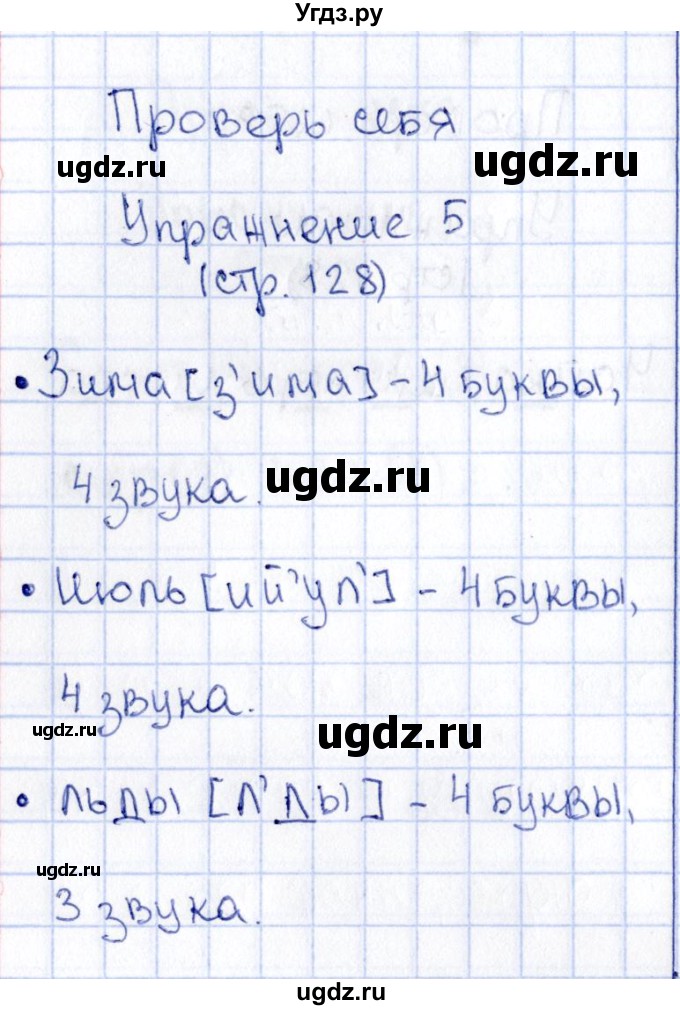 Угдз.ру
Проверь себя
ugdz.ru
ugdz.ru
Упражнение 5
(стр. 128)
• Зима [з'има] - 4 буквы,
4 звука.
ugdz.ru
• Июль [ий'ул'] - 4 буквы,
4 звука.
ugdz.ru
ugdz.ru
• льды [л'ды] - 4 буквы,
ugdz.ru
3 звука.
ugdz.ru